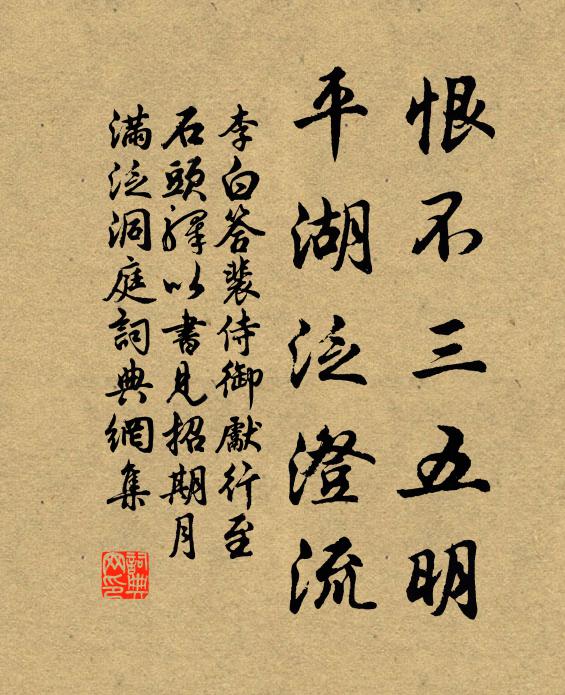 恨不三五明
平湖泛澄流
李白答裴侍御獻行至
石頭驛以書見招期月
滿泛洞庭詞典網集
詞典網印